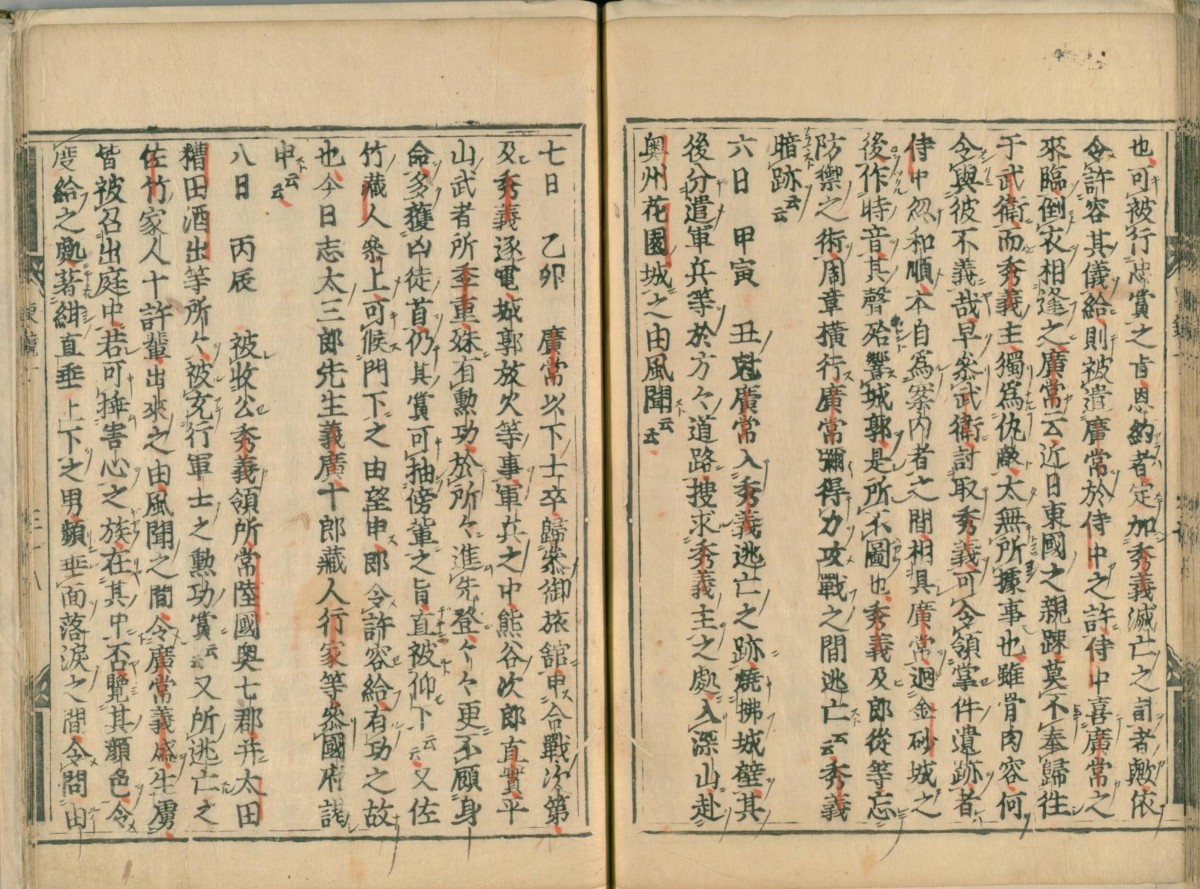 也可被行忠賞之肯恩約者定加秀義滅亡之計者歟依
令許容其儀給則被遣廣常於侍中之許侍中喜廣常之
來臨倒衣相逢之廣常云近日東國之親踈莫不奉歸往
于武衛而秀義主獨爲仇敵太無所據事也雖骨肉容何
令與彼不義哉早參武衛討取秀義可令領掌件遺跡者
侍中忽和順本自爲案内者之間相具廣常廻金砂城之
後作時音其聲殆響城郭是所不圖也秀義及郎從等忘
防禦之術周章横行廣常彌得力攻戰之間逃亡云云秀義
暗跡云云
六日 甲寅 丑尅廣常入秀義逃亡之跡燒拂城壁其
後分遣軍兵等於方々道路搜求秀義主之處入深山赴
奥州花園城之由風聞云云
七日 乙卯 廣常以下士卒歸參御旅舘申合戰次第
及秀義逐電城郭放火等事軍兵之中熊谷次郎直實平
山武者所季重殊有勲功於所々進先登々々更不顧身
命多獲凶徒首仍其賞可抽傍輩之旨直被仰下云云又佐
竹藏人參上可候門下之由望申即令許容給有功之故
也今日志太三郎先生義廣十郎藏人行家等參國府謁
申云云
八日 丙辰 被收公秀義領所常陸國奥七郡并太田
糟田酒出等所々被充行軍士之勲功賞云云又所逃亡之
佐竹家人十許輩出來之由風聞之間令廣常義盛生虜
皆被召出庭中若可挿害心之族在其中否覽其顔色令
度給之處著紺直垂上下之男頻垂面落涙之間令問由